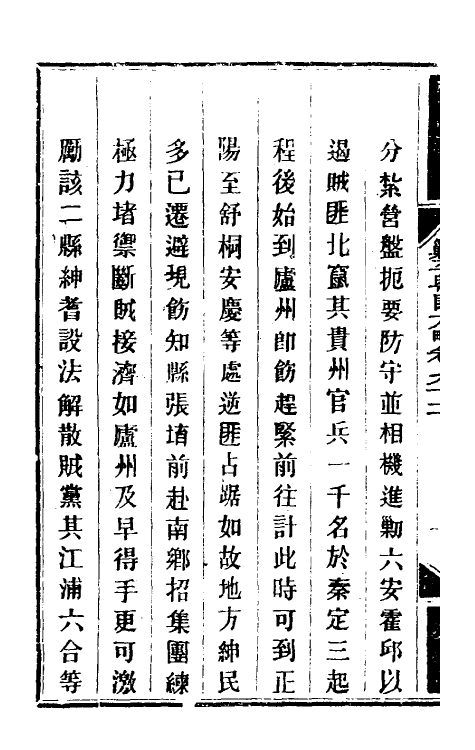 分紮營盤扼要防守並相機進勦六安霍邱以
遏賊匪北竄其貴州官兵一千名於秦定三起
程後始到廬州卽飭趕緊前往計此時可到正
陽至舒桐安慶等處逆匪占踞如故地方紳民
多已遷避現飭知縣張堉前赴南鄉招集團練
極力堵禦斷賊接濟如廬州及早得手更可激
勵該二縣紳耆設法解散賊黨其江浦六合等